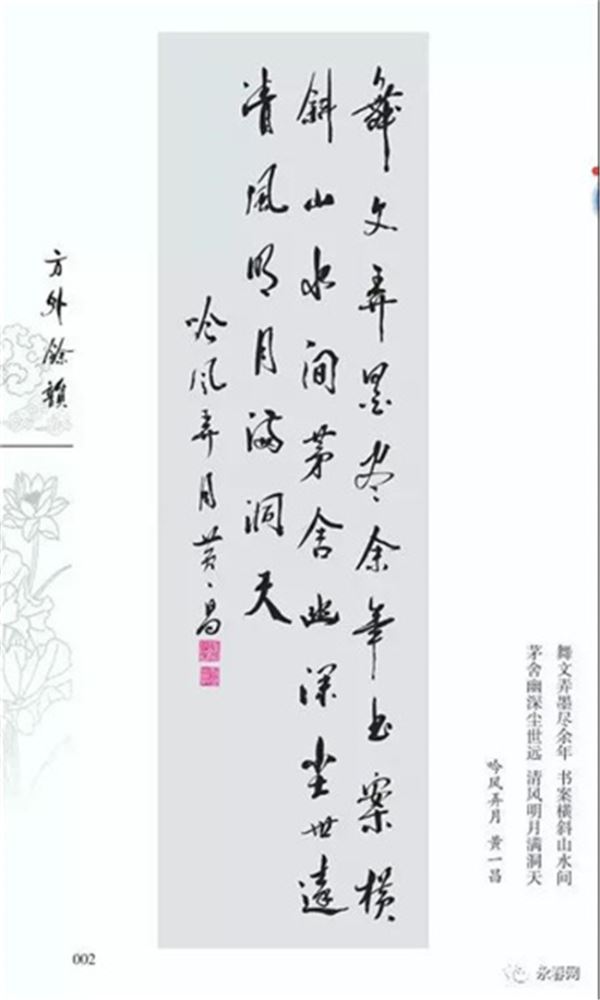 舞文弄墨尽余年书案横
斜山水间茅舍幽深尘世遠
清风明月满洞天
吟风弄月黄一昌
方外餘韻
舞文弄墨尽余年 书案横斜山水间
茅舍幽深尘世远 清风明月满洞天
吟风弄月 黄一昌
002
永春网